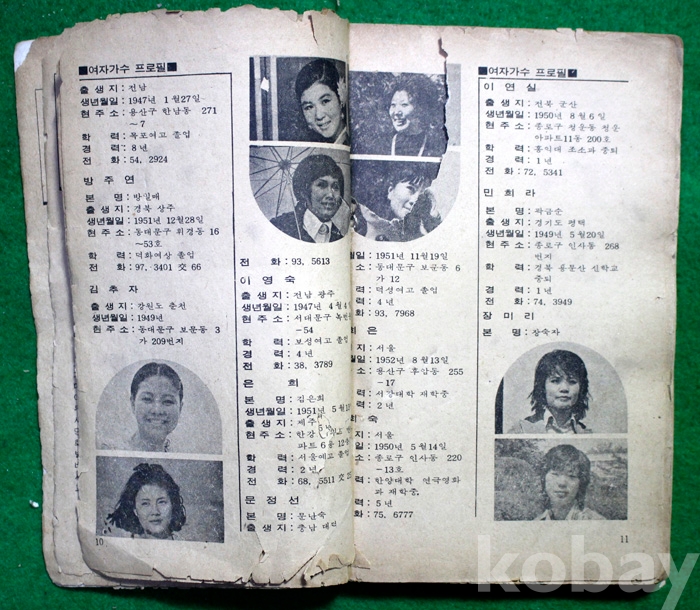 ■여자가수 프로필■
출 생 지 : 전남
생년월일 : 1947년 1월27일
현 주 소 : 용산구 한남동 271
~7
학 력 : 목포여고 졸업
경 력 : 8년
전 화 : 54, 2924
방 주 연
본 명 : 방일매
출 생 지 : 경북 상주
생년월일 : 1951년 12월28일
현 주 소 : 동대문구 휘경동 16
~53호
학 력 : 덕화여상 졸업
전 화 : 97. 3401 交 66
김 추 자
출 생 지 : 강원도 춘천
생년월일 : 1949년
현 주 소 : 동대문구 보문동 3
가 209번지
10
전 화 : 93, 5613
이 영 숙
출 생 지 : 전남 광주
생년월일 : 1947년 4월
현 주 소 : 서대문구
-54
학 력 : 보성여고 졸업
경 력 : 4년
전 화 : 38, 3789
은 희
본 명 : 김은희
생년월일 : 1951년 5월
출 생 지 : 제주
현 주 소 : 한강
파트 6동 12
학 력 : 서울예고 졸업
경 력 : 2년
전 화 : 68, 5511 交
문 정 선
본 명 : 문난숙
출 생 지 : 충남 대덕
월일 : 1951년 11월19일
소 : 동대문구 보문동 6
가 12
력 : 덕성여고 졸업
력 : 4년
화 : 93, 7968
희 은
지 : 서울
월일 : 1952년 8월13일
소 : 용산구 후암동 255
-17
력 : 서강대학 재학중
력 : 2년
숙
지 : 서울
일 : 1950년 5월14일
소 : 종로구 인사동 220
-13호
력 : 한양대학 연극영화
과 재학중,
력 : 5년
화 : 75. 6777
■여자가수 프로필
이 연 실
출 생 지 : 전북 군산
생년월일 : 1950년 8월 6일
현 주 소 : 종로구 청운동 청운
아파트11동 200호
학 력 : 홍익대 조소과 중퇴
경 력 : 1년
전 화 : 72. 5341
민 희 라
본 명 : 곽금순
출 생 지 : 경기도 평택
생년월일 : 1949년 5월20일
현 주 소 : 종로구 인사동 268
번지
학 력 : 경북 용문산 신학교
중퇴
경 력 : 1년
전 화 : 74, 3949
장 미 리
본 명 : 장숙자
11
kobay